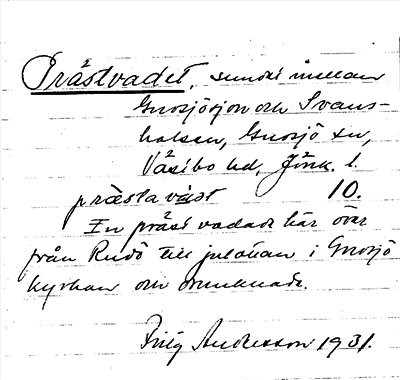 Prästvadet, sundet mellan
Gnosjösjön och Svans-
holsen, Gnosjö sn,
Västbo hd, Jönk. l.
præsta vàst 10.
En präst vadade här över
från Rudö till julottan i Gnosjö
kyrkan och drunknade.
Stig Andersson 1931.